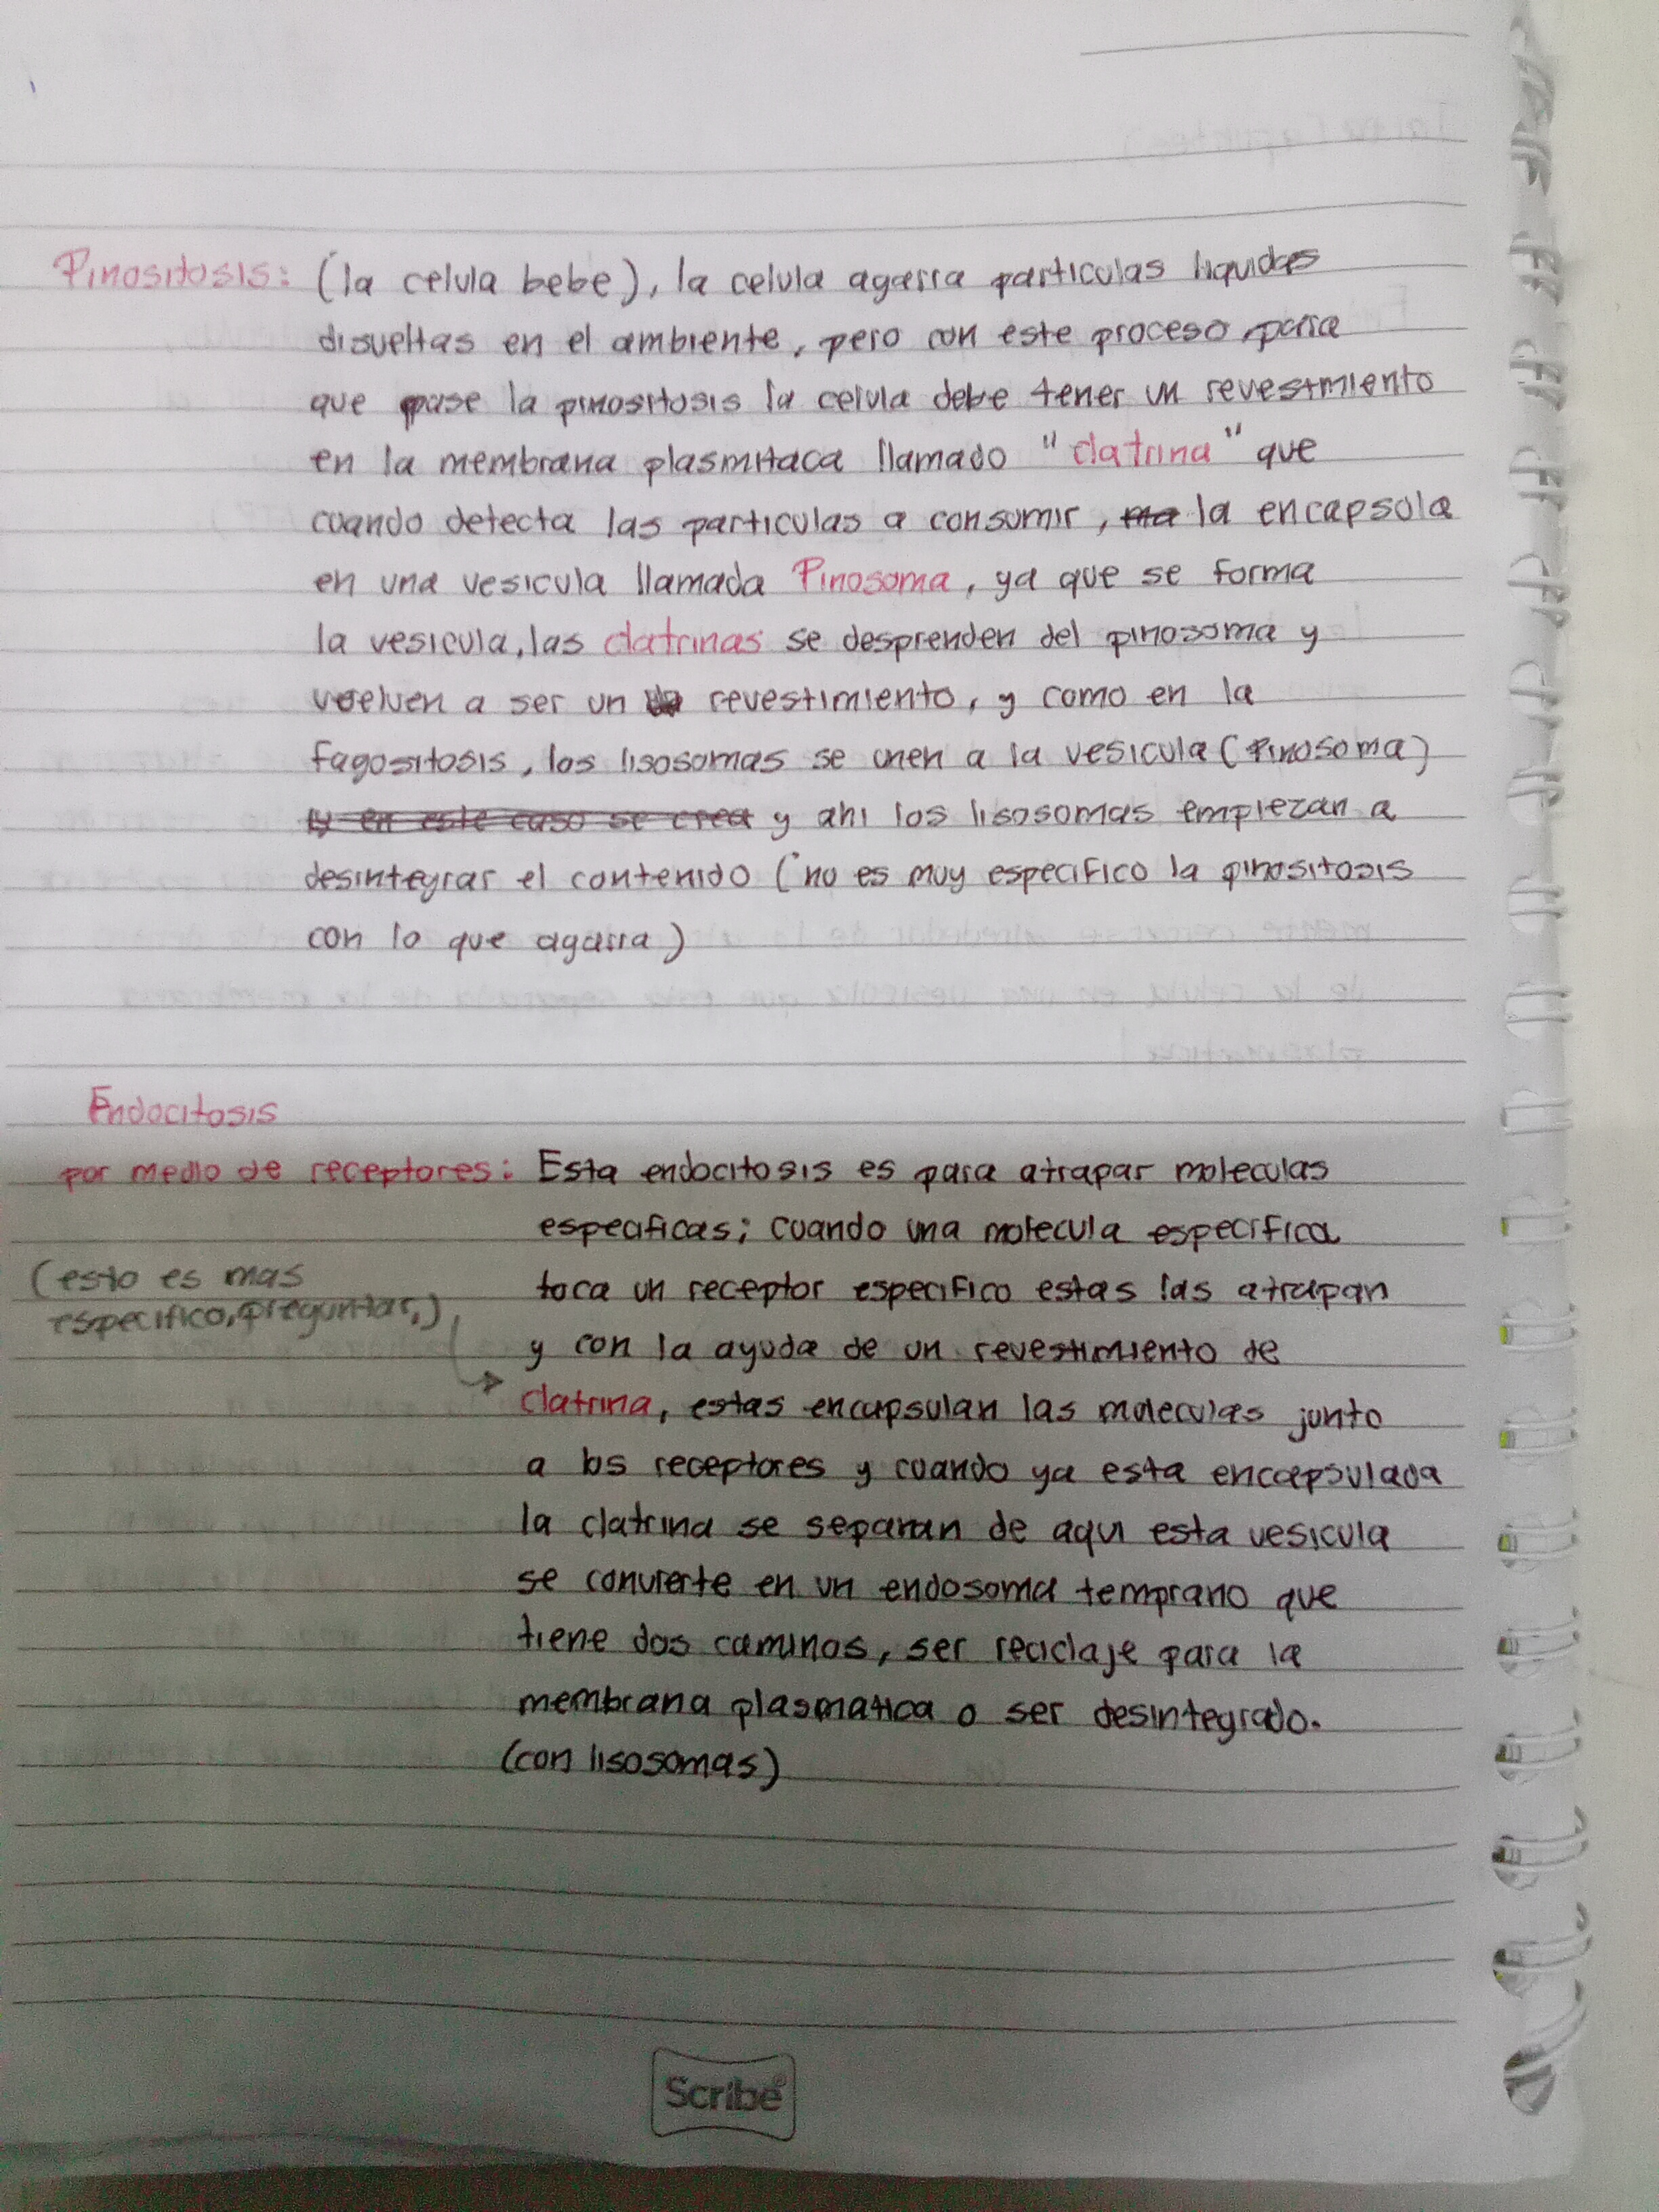 Pinositosis: (la celula bebe), la celula agarra particulas liquidas
disueltas en el ambiente, pero con este proceso, para
que pase la pinositosis la celula debe tener un revestimiento
en la membrana plasmitaca llamado "clatrina" que
cuando detecta las particulas a consumir, la encapsula
en una vesicula llamada Pinosoma, ya que se forma
la vesicula, las clatrinas se desprenden del pinosoma y
vuelven a ser un revestimiento, y como en la
fagositosis, los lisosomas se unen a la vesicula (Pinosoma)
y en este caso se crea y ahi los lisosomas empiezan a
desintegrar el contenido (no es muy especifico la pinositosis
con lo que agarra)
Endocitosis
por medio de receptores: Esta endocitosis es para atrapar moleculas
especificas; cuando una molecula especifica
(esto es mas
especifico, preguntar,)
toca un receptor especifico estas las atrapan
y con la ayuda de un revestimiento de
clatrina, estas encapsulan las moleculas junto
a los receptores y cuando ya esta encapsulada
la clatrina se separan de aqui esta vesicula
se convierte en un endosoma temprano que
tiene dos caminos, ser reciclaje para la
membrana plasmatica o ser desintegrado.
(con lisosomas)
Scribe